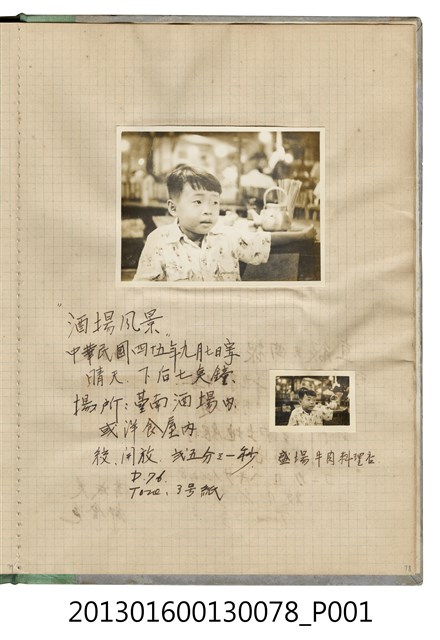 "酒場風景"
中華民國四五年九月七日寫
晴天、下后七矣鐘、
場所：臺南酒場内
或洋食屋内
後、開放、弍五分之一秒
D.76.
3号紙
盛場牛肉料理店
201301600130078_P001